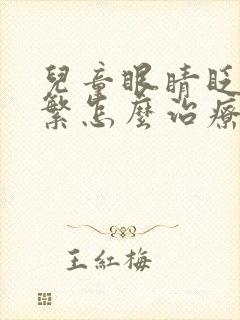 兒童眼睛眨
繁怎麼治療
王紅梅